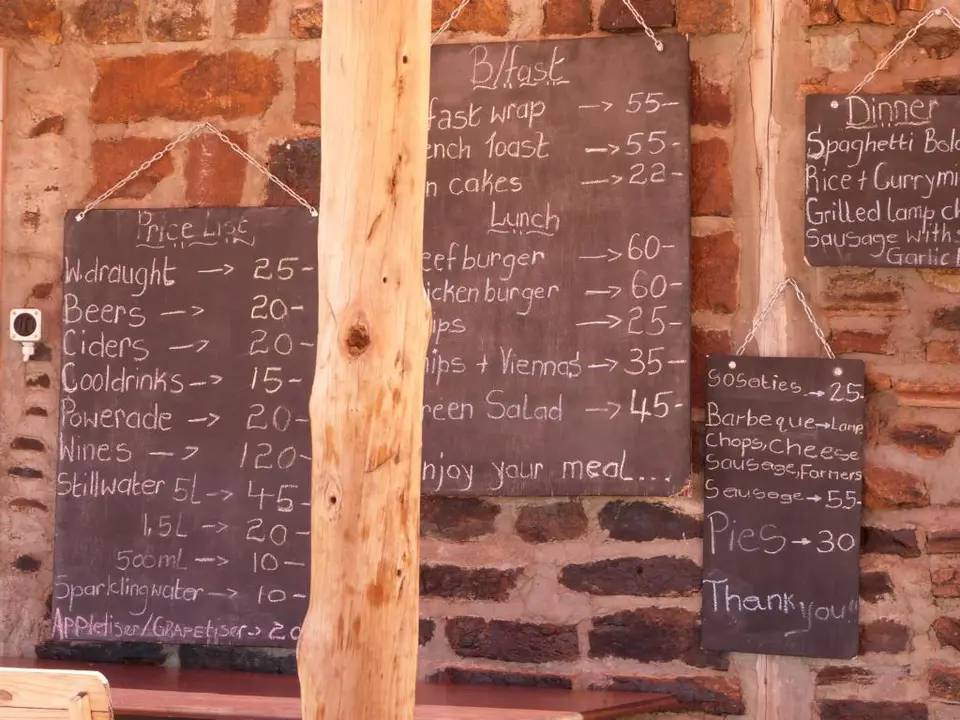 Price List
W.draught → 25-
Beers → 20-
Ciders → 20-
Cooldrinks → 15-
Powerade → 20-
Wines → 120-
Stillwater 5L → 45-
1,5L → 20-
500mL → 10-
Sparklingwater → 10-
Appletiser/GRAPEtiser → 20
B/fast
fast wrap → 55-
ench Toast → 55-
n cakes → 22-
Lunch
eefburger → 60-
ickenburger → 60-
ips → 25-
ips + Viennas → 35-
reen Salad → 45-
njoy your meal....
Dinner
Spaghetti Bolo
Rice + Currymi
Grilled lamp ch
Sausage with
Garlic
Sosaties → 25.
Barbeque → Lamp
Chops, Cheese
Sausage, Farmers
Sausage → 55.
Pies → 30
Thank you!!